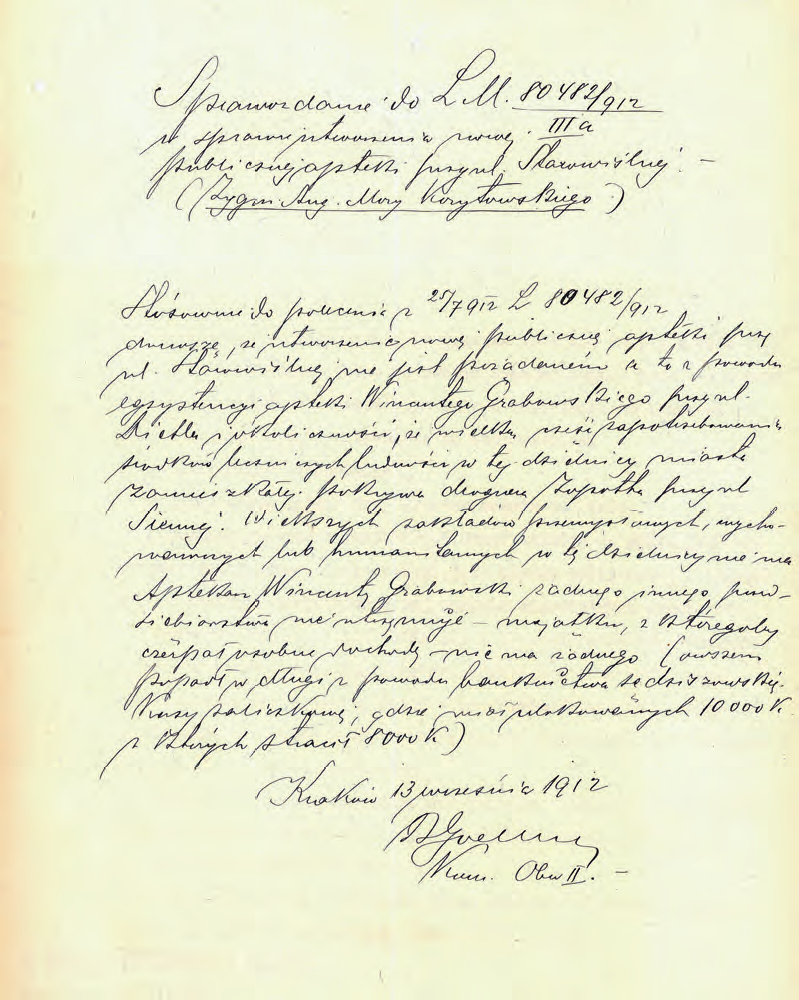 Sprawozdanie do L M. 80482/912
w sprawie utworzenia nowej IIIa
publicznej apteki przy ul. Starowiślnej. –
(Zygm. Aug. Mory Korytowskiego)
Stósownie do polecenia z 25/7 912 L 80482/912
donoszę, że utworzenie nowej publicznej apteki przy
ul. Starowiślnej nie jest pożądanem a to z powodu
egzystencyi apteki Wincentego Grabowskiego przy ul.
Dietla i okoliczności, że wielką część zapotrzebowania
środków leczniczych ludności w tej dzielnicy miasta
zamieszkałej pokrywa drogerya Zopotha przy ul
Siennej. Większych zakładów przemysłowych, wycho-
wawczych lub humanitarnych w tej dzielnicy nie ma
Aptekarz Wincenty Grabowski żadnego innego przed-
siebiorstwa nie utrzymuje – majątku, z któregoby
czerpał osobne dochody – nie ma żadnego (owszem
popadł w długi z powodu bankructwa sędziszowskiej
Kasy zaliczkowej, gdzie miał ulokowanych 10 000 K
z których stracił 8000 K)
Kraków 13 września 1912
Kom. Obw II. –